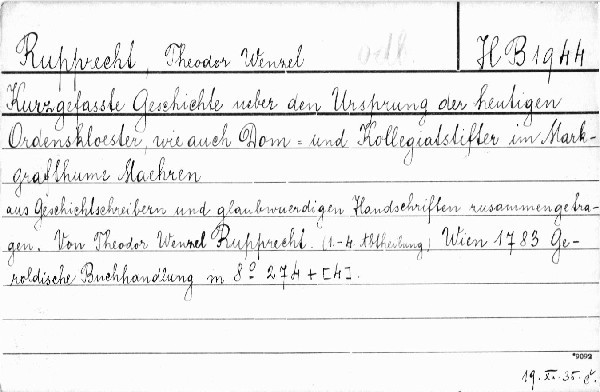 Rupprecht, Theodor Wenzel HB1944
Kurzgefasste Geschichte ueber den Ursprung der heutigen
Ordenskloester, wie auch Dom= und Kollegiatstifter im Mark-
grafthume Maehren
aus Geschichtschreibern und glaubwuerdigen Handschriften zusammengetra-
gen. Von Theodor Wenzel Rupprecht. (1.-4. Abtheilung) Wien 1783 Ge-
roldische Buchhandlung m 8º 274+[4].
*9092
19. XI. 35.